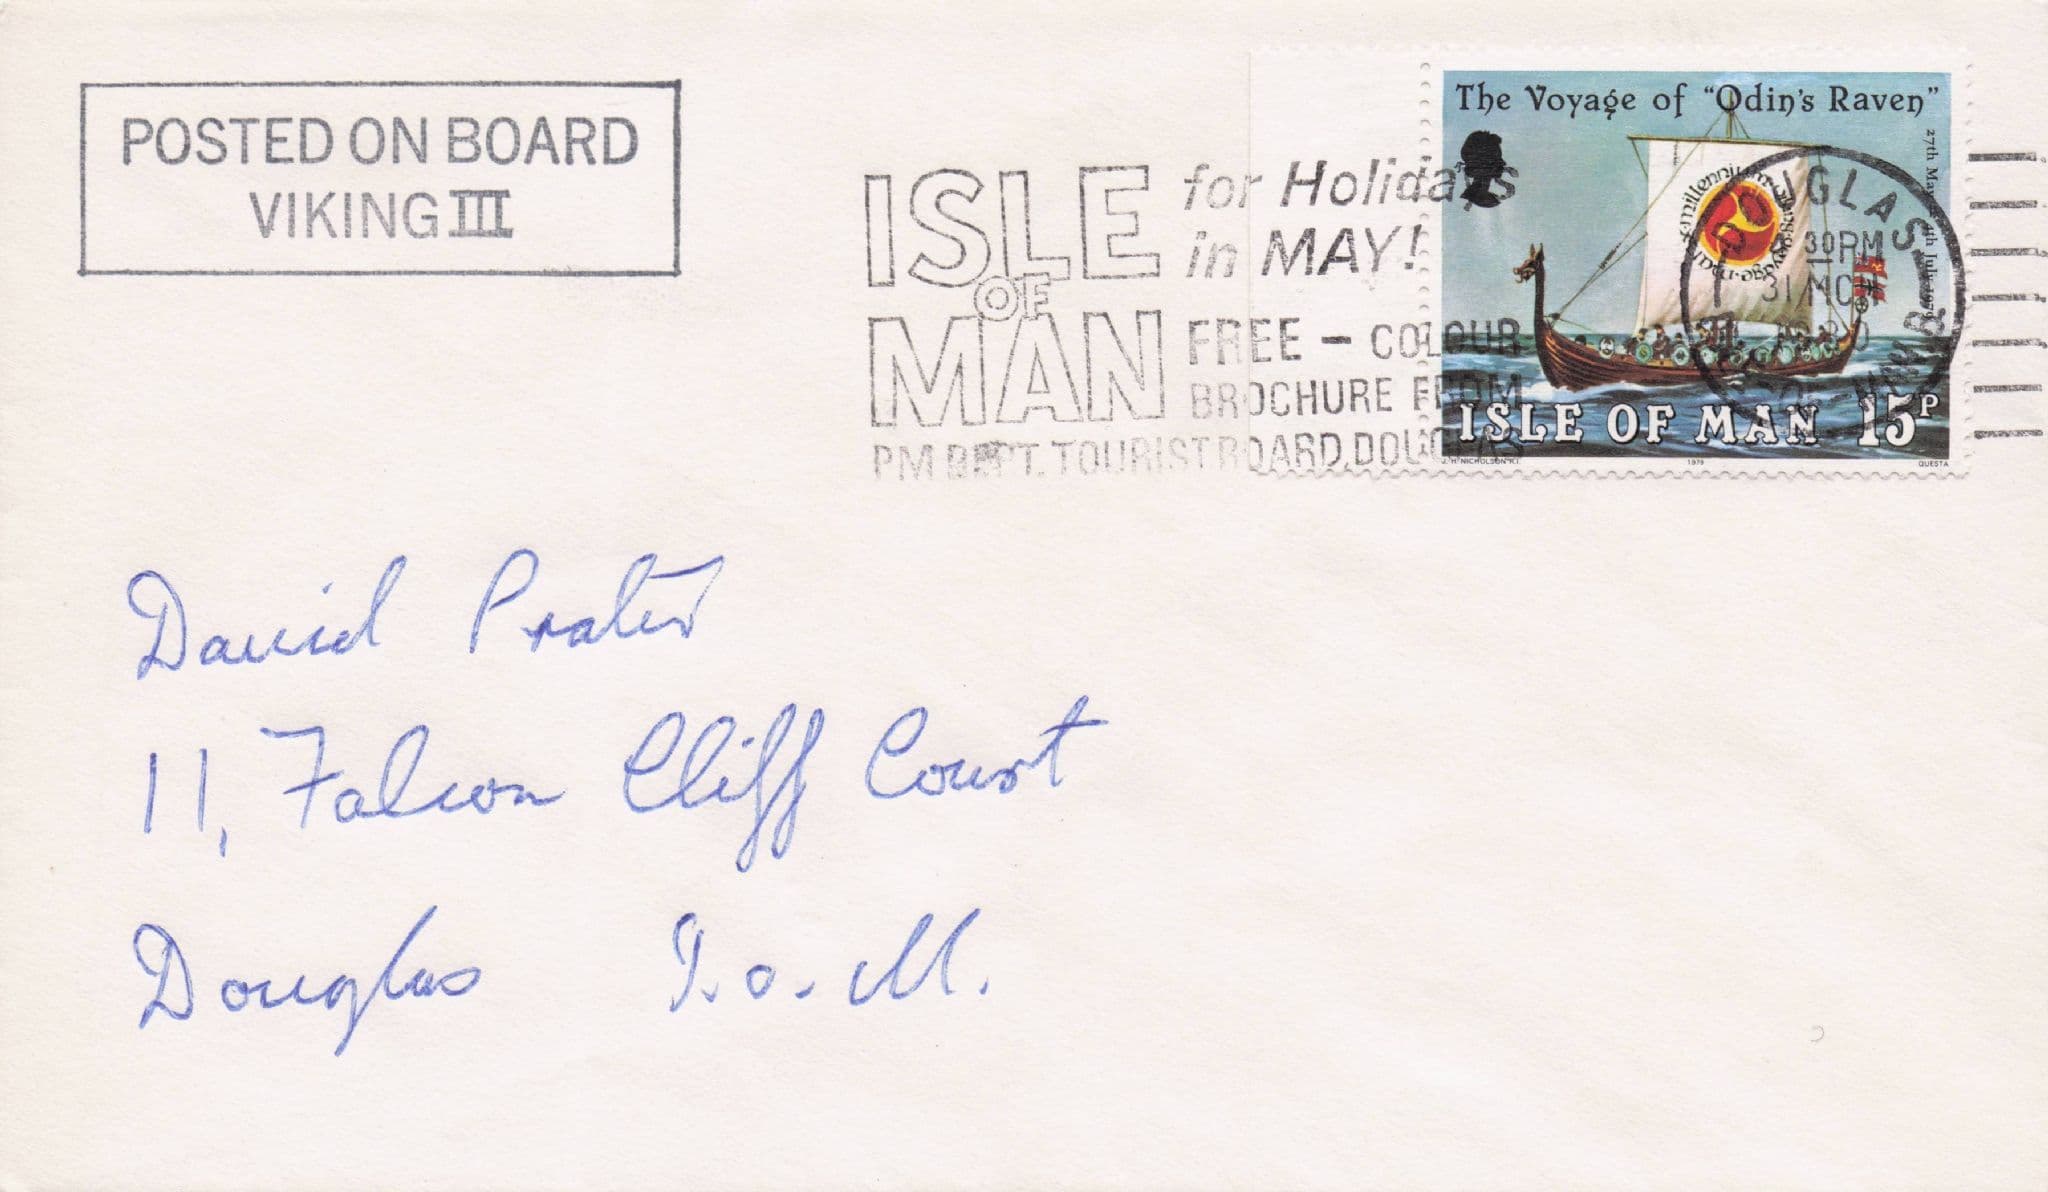 POSTED ON BOARD
VIKING III
ISLE
OF
MAN
for Holidays
in MAY!
FREE – COLOUR
BROCHURE FROM
PM DEPT. TOURIST BOARD, DOUGLAS
The Voyage of "Odin's Raven"
27th May
4th July 1979
millennium
DOUGLAS
30 PM
31 MCH
ISLE OF MAN 15P
J.H. NICHOLSON R.I. 1979 QUESTA
David Prater
11, Falcon Cliff Court
Douglas I.o.M.